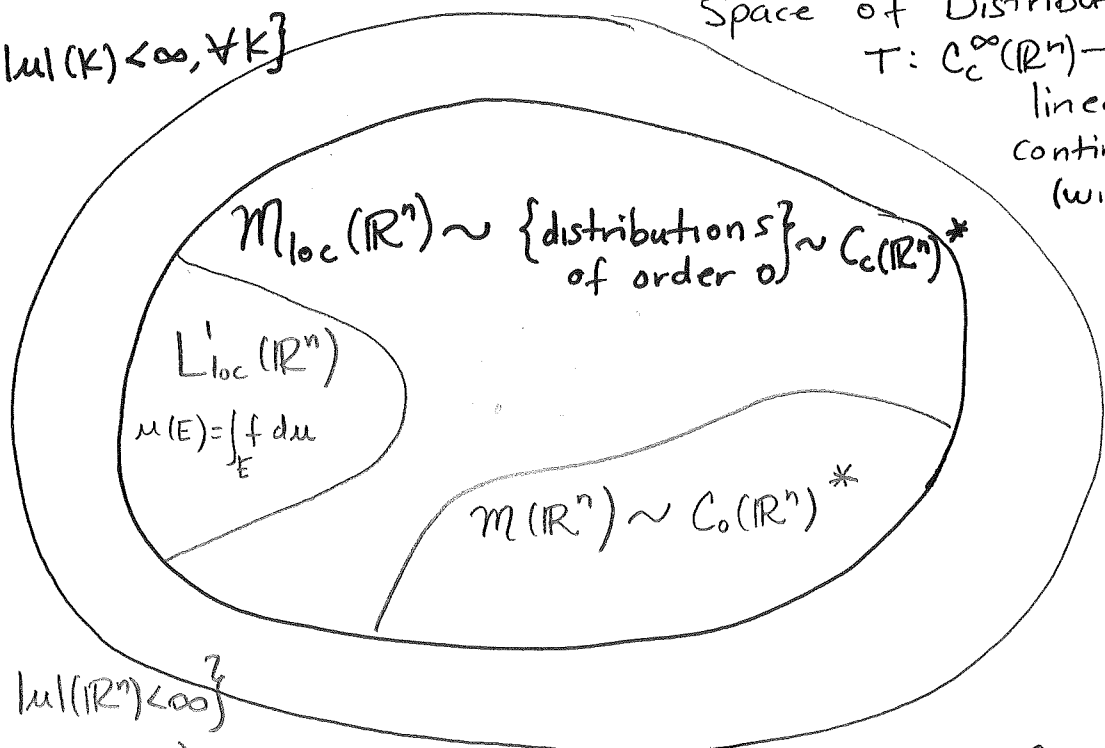 Space of Distribu
|μ|(K)<∞, ∀K}
T: C_c^∞(ℝⁿ)–
line
conti
(wi
M_loc(ℝⁿ) ~ {distributions of order 0} ~ C_c(ℝⁿ)*
L¹_loc(ℝⁿ)
μ(E)=∫_E f dμ
m(ℝⁿ) ~ C_0(ℝⁿ)*
|μ|(ℝⁿ)<∞}